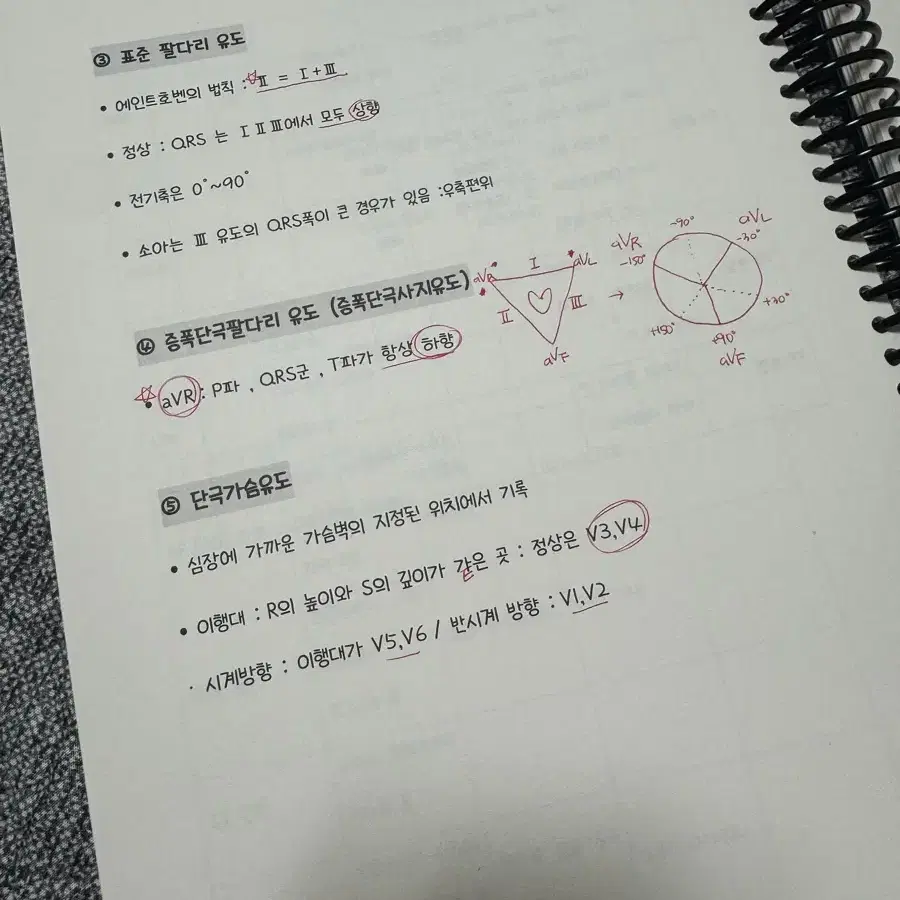 ③ 표준 팔다리 유도
• 에인트호벤의 법칙 : ☆ Ⅱ = Ⅰ+Ⅲ
• 정상 : QRS 는 Ⅰ Ⅱ Ⅲ에서 모두 상향
• 전기축은 0°~90°
• 소아는 Ⅲ 유도의 QRS폭이 큰 경우가 있음 :우축편위
④ 증폭단극팔다리 유도 (증폭단극사지유도)
☆ • aVR : P파 , QRS군 , T파가 항상 하향
aVR Ⅰ aVL
Ⅱ Ⅲ →
aVF
-90° aVL
aVR -30°
-150°
+30°
+150°
+90°
aVF
⑤ 단극가슴유도
• 심장에 가까운 가슴벽의 지정된 위치에서 기록
• 이행대 : R의 높이와 S의 깊이가 같은 곳 : 정상은 V3,V4
· 시계방향 : 이행대가 V5,V6 / 반시계 방향 : V1,V2